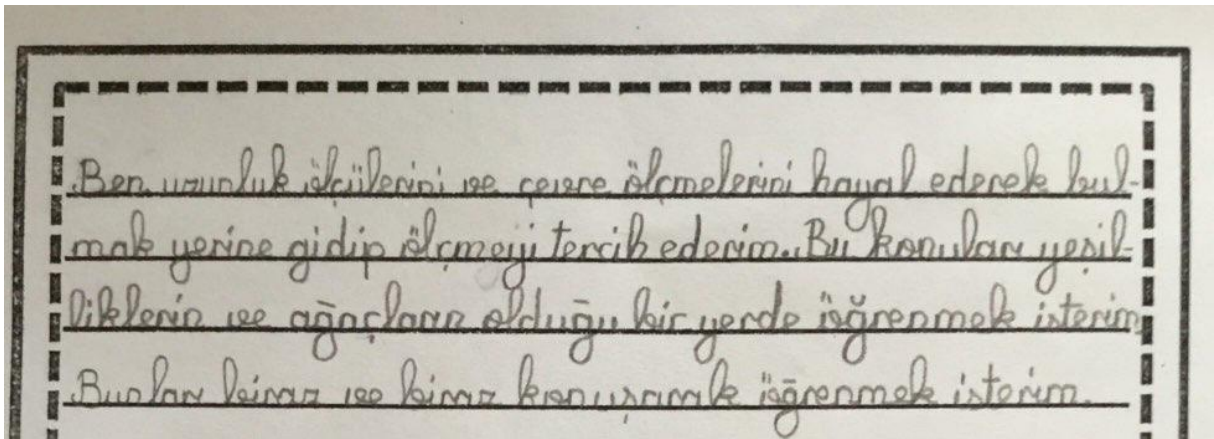 Ben uzunluk ölçülerini ve çevre ölçmelerini hayal ederek bul-
mak yerine gidip ölçmeyi tercih ederim. Bu konuları yeşil-
liklerin ve ağaçların olduğu bir yerde öğrenmek isterim.
Bunları biraz ve biraz konuşarak öğrenmek isterim.